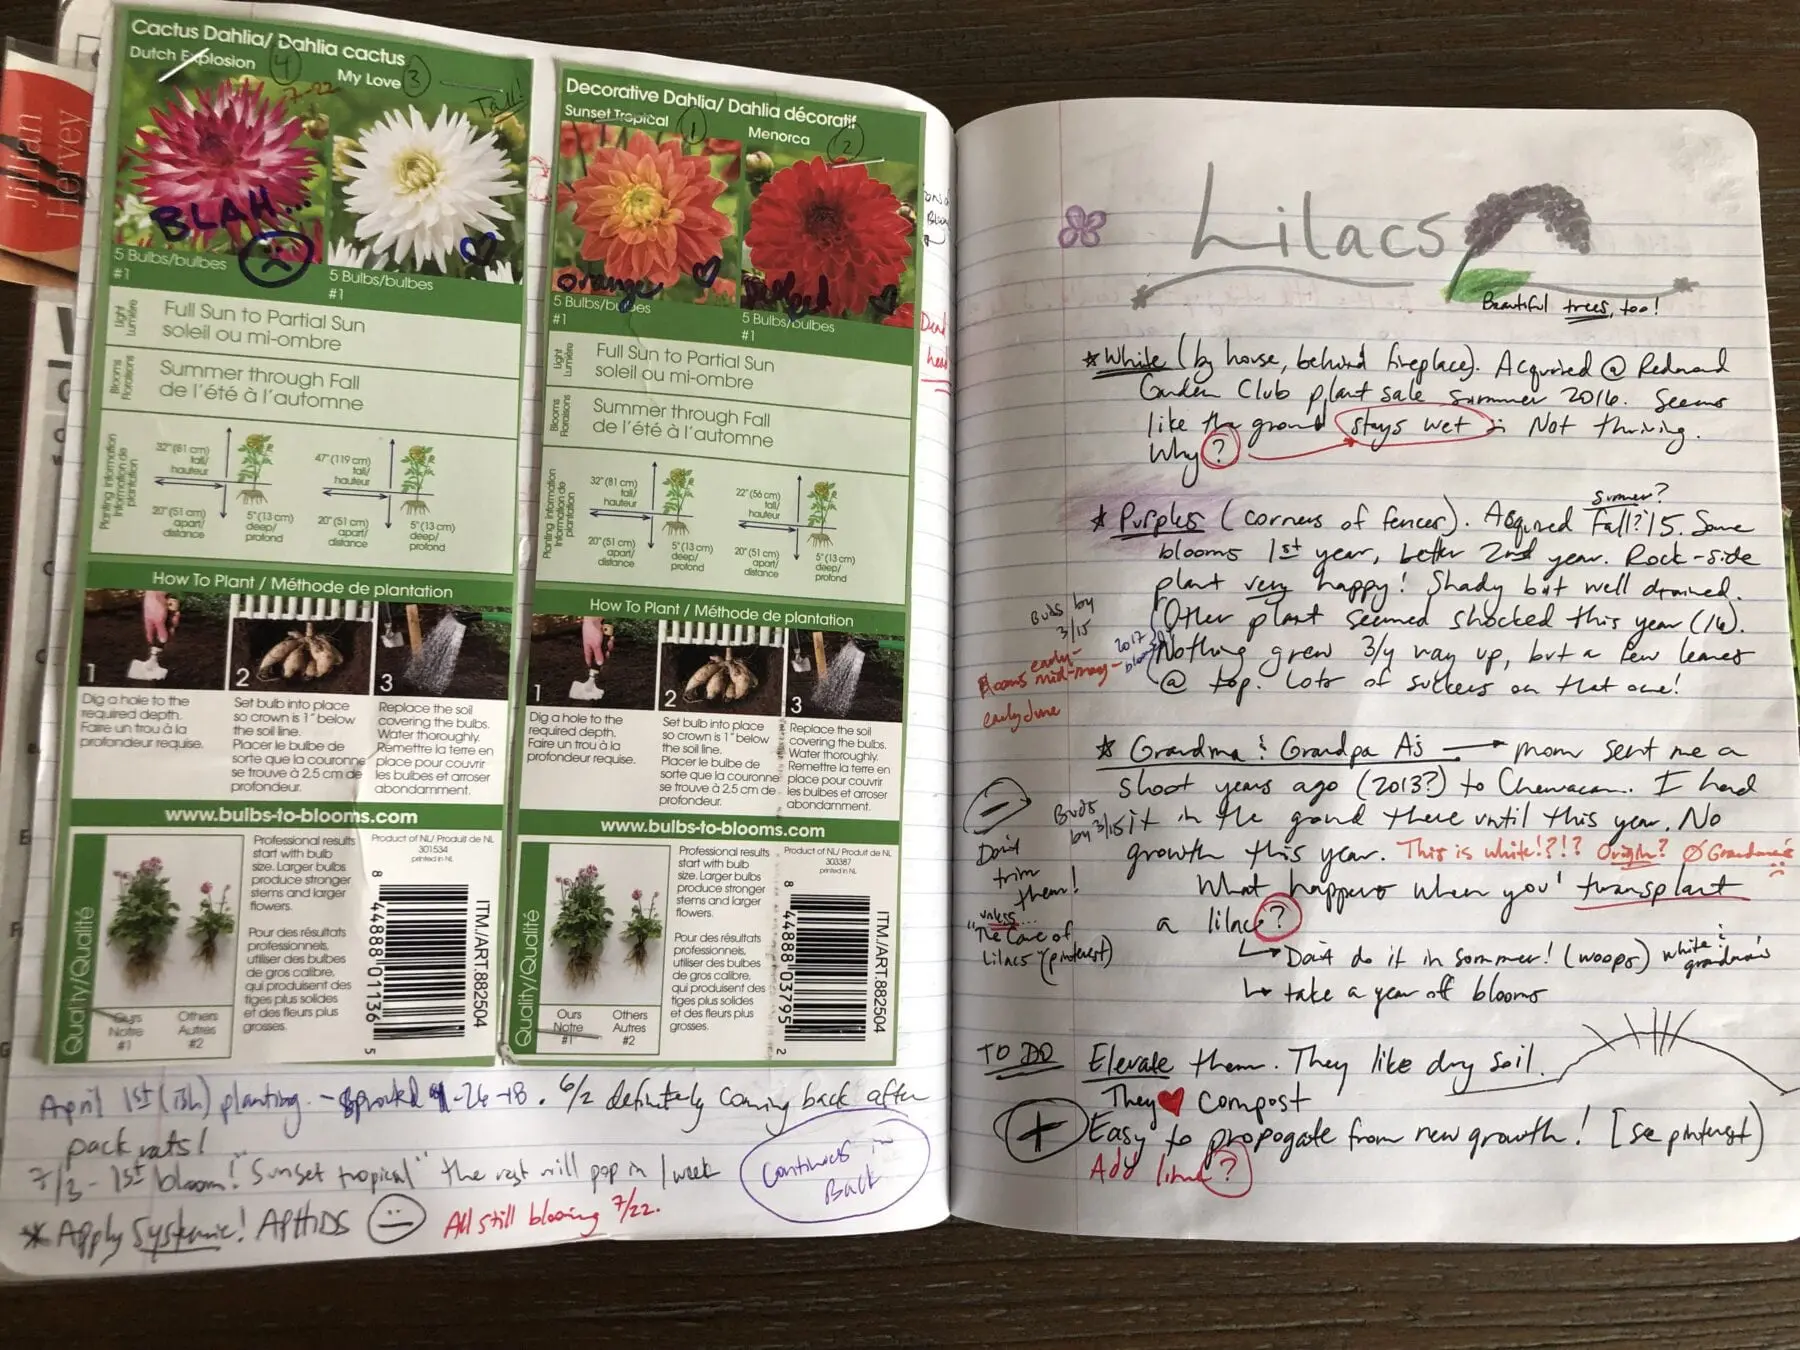 Jillian
Hervey
Cactus Dahlia/ Dahlia cactus
Dutch Explosion
4
My Love
3
7-22
Tall!
BLAH...
5 Bulbs/bulbes
#1
5 Bulbs/bulbes
#1
Light
Lumière
Full Sun to Partial Sun
soleil ou mi-ombre
Blooms
Floraisons
Summer through Fall
de l'été à l'automne
Planting information
Information de
plantation
32" (81 cm)
tall/
hauteur
20" (51 cm)
apart/
distance
5" (13 cm)
deep/
profond
47" (119 cm)
tall/
hauteur
20" (51 cm)
apart/
distance
5" (13 cm)
deep/
profond
How To Plant / Méthode de plantation
1
2
3
Dig a hole to the
required depth.
Faire un trou à la
profondeur requise.
Set bulb into place
so crown is 1" below
the soil line.
Placer le bulbe de
sorte que la couronne
se trouve à 2.5 cm de
profondeur.
Replace the soil
covering the bulbs.
Water thoroughly.
Remettre la terre en
place pour couvrir
les bulbes et arroser
abondamment.
www.bulbs-to-blooms.com
Quality/Qualité
Ours
Notre
#1
Others
Autres
#2
Professional results
start with bulb
size. Larger bulbs
produce stronger
stems and larger
flowers.
Pour des résultats
professionnels,
utiliser des bulbes
de gros calibre,
qui produisent des
tiges plus solides
et des fleurs plus
grosses.
Product of NL/ Produit de NL
301534
printed in NL
8 44888 01136 5
ITM./ART.882504
Decorative Dahlia/ Dahlia décoratif
Sunset Tropical
1
Menorca
2
oranges
5 Bulbs/bulbes
#1
5 Bulbs/bulbes
#1
Light
Lumière
Full Sun to Partial Sun
soleil ou mi-ombre
Blooms
Floraisons
Summer through Fall
de l'été à l'automne
Planting information
Information de
plantation
32" (81 cm)
tall/
hauteur
20" (51 cm)
apart/
distance
5" (13 cm)
deep/
profond
22" (56 cm)
tall/
hauteur
20" (51 cm)
apart/
distance
5" (13 cm)
deep/
profond
How To Plant / Méthode de plantation
1
2
3
Dig a hole to the
required depth.
Faire un trou à la
profondeur requise.
Set bulb into place
so crown is 1" below
the soil line.
Placer le bulbe de
sorte que la couronne
se trouve à 2.5 cm de
profondeur.
Replace the soil
covering the bulbs.
Water thoroughly.
Remettre la terre en
place pour couvrir
les bulbes et arroser
abondamment.
www.bulbs-to-blooms.com
Quality/Qualité
Ours
Notre
#1
Others
Autres
#2
Professional results
start with bulb
size. Larger bulbs
produce stronger
stems and larger
flowers.
Pour des résultats
professionnels,
utiliser des bulbes
de gros calibre,
qui produisent des
tiges plus solides
et des fleurs plus
grosses.
Product of NL/ Produit de NL
303387
printed in NL
8 44888 03795 2
ITM./ART.882504
April 1st (ish) planting. - Sprouted 4-26-18. 6/2 definitely coming back after
pack rats!
7/3 - 1st bloom! "Sunset tropical" the rest will pop in 1 week
Continues in
Back
* Apply Systemic! APHIDS
All still blooming 7/22.
Lilacs
Beautiful trees, too!
* White (by house, behind fireplace). Acquired @ Redmond
Garden Club plant sale summer 2016. Seems
like the ground stays wet & Not thriving.
Why?
summer?
* Purples (corners of fences). Acquired Fall? '15. Some
blooms 1st year, better 2nd year. Rock-side
plant very happy! Shady but well drained.
Other plant seemed shocked this year (16).
Nothing grew 3/4 way up, but a few leaves
@ top. Lots of suckers on that one!
Buds by
3/15
2017
early-
Blooms mid-may-
early June
* Grandma & Grandpa A's → mom sent me a
shoot years ago (2013?) to Chewacan. I had
it in the ground there until this year. No
growth this year. This is white!?!? Origin? Ø Grandma's
What happens when you transplant
a lilac?
↳ Don't do it in sommer! (woops) white &
grandma's
↳ take a year off blooms
Buds
by 3/15
Don't
trim
them!
unless...
"The Care of
Lilacs" (pinterest)
TO DO
Elevate them. They like dry soil.
They ♥ compost
+ Easy to propogate from new growth! [se pinterest)
Add lime?